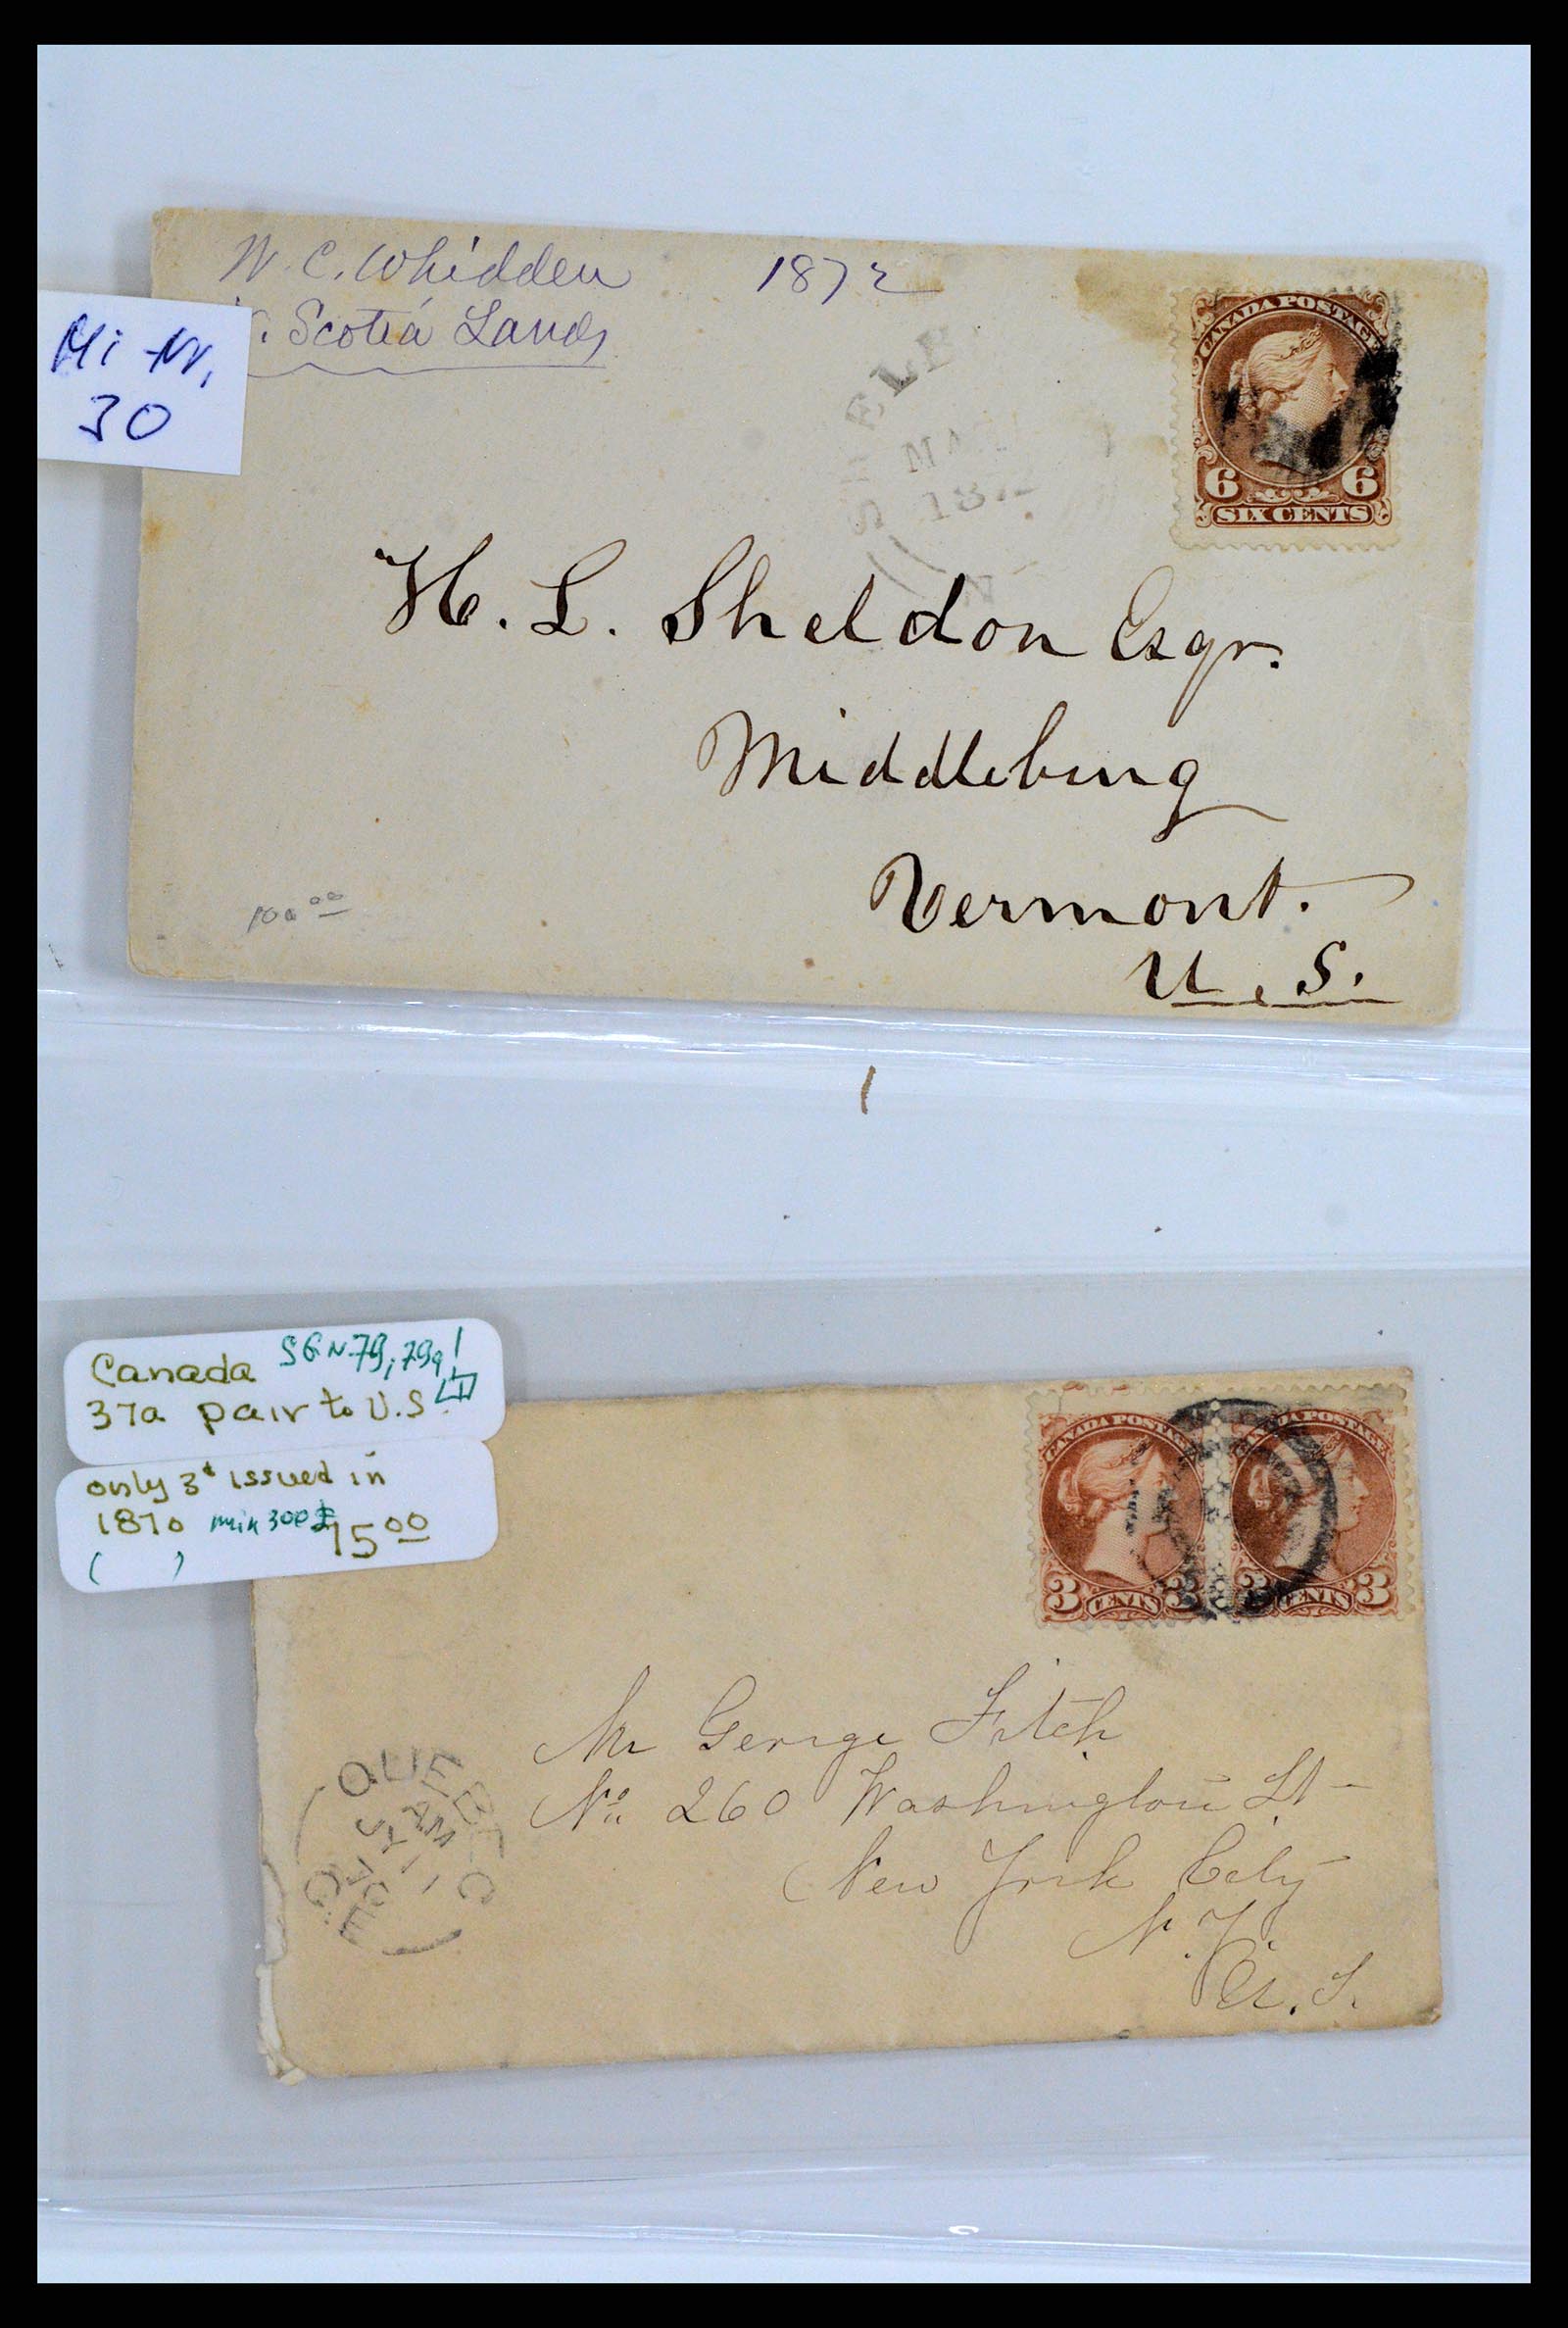 W. C. Whidden 1872
. Scotia Lands
Mi Nr.
30
CANADA POSTAGE
6 6
SIX CENTS
MA
187
H. L. Sheldon Esqr.
Middlebury
Vermont.
U. S.
100 00
Canada SG N 79, 79a!
37a pair to U.S.
only 3¢ issued in
1870 min 300 $75 00
( )
CANADA POSTAGE CANADA POSTAGE
3 CENTS 3 3 CENTS 3
Mr George Fitch
No. 260 Washington St
New York City
N. Y.
U. S.
QUEBEC
AM
JY 11
70